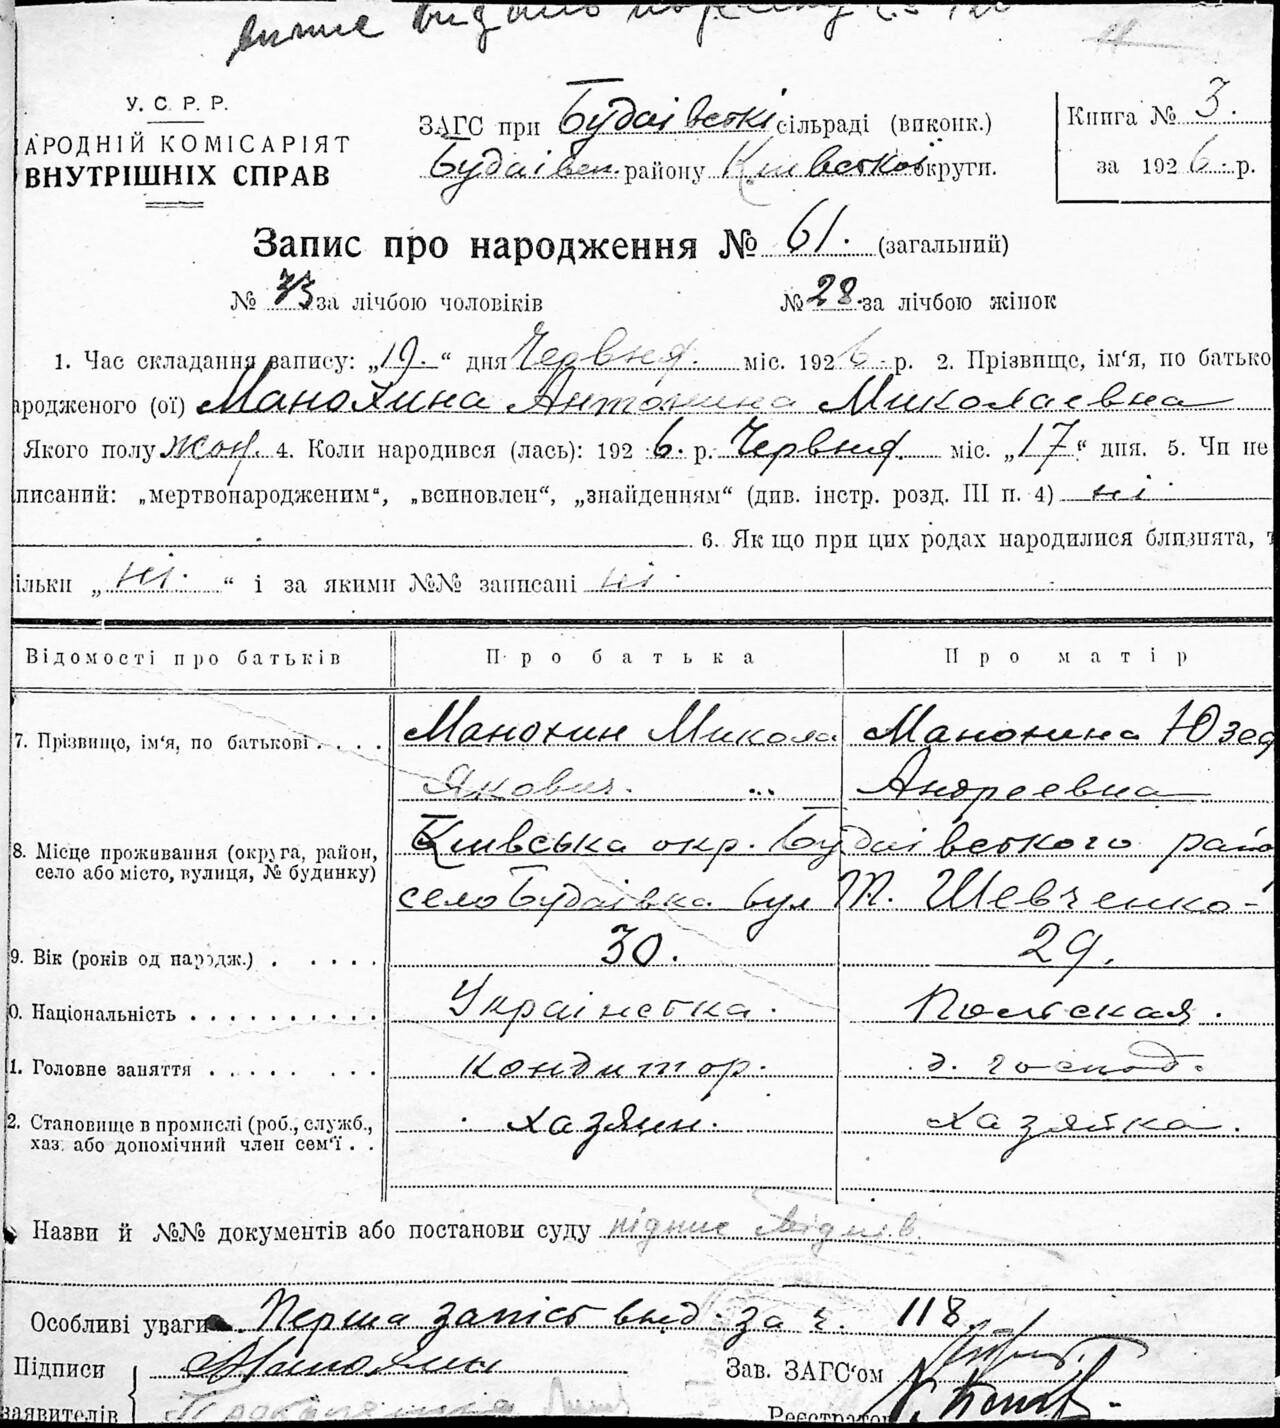 У. С. Р. Р.
АРОДНІЙ КОМІСАРІЯТ
ВНУТРІШНІХ СПРАВ
ЗАГС при Будаївскі сільраді (виконк.)
Будаівск. району Київської округи.
Книга № 3.
за 1926 р.
Запис про народження № 61. (загальний)
№ 33 за лічбою чоловіків № 28. за лічбою жінок
1. Час складання запису: „19.“ дня Червня. міс. 1926. р. 2. Прізвище, ім‘я, по батько
ародженого (ої) Манохина Антонина Миколаевна
Якого полу жон. 4. Коли народився (лась): 1926. р. Червня міс. „17“ дня. 5. Чи не
писаний: „мертвонародженим“, „всиновлен“, „знайденням“ (див. інстр. розд. III п. 4) ні.
6. Як що при цих родах народилися близнята, т
ільки „ні.“ і за якими №№ записані ні.
Відомості про батьків Про батька Про матір
7. Прізвище, ім‘я, по батькові . . . . Манохин Микола Манохина Юзеф
Якович. Андреевна
8. Місце проживання (округа, район, село або місто, вулиця, № будинку) Київська окр. Будаівского райо
село Будаівка вул Т. Шевченко-
9. Вік (років од народж.) . . . . . 30. 29.
0. Національність . . . . . . . . . . Украінска. Польская.
1. Головне заняття . . . . . . . . кондитор. д. господ.
2. Становище в промислі (роб., служб., хазяин. хазяйка.
хаз. або допомічний член сем‘ї . .
Назви й №№ документів або постанови суду підпис
Особливі уваги Перша запісь вид. за ч. 118.
Підписи Манохин Зав. ЗАГС‘ом
заявителів Реєстратор